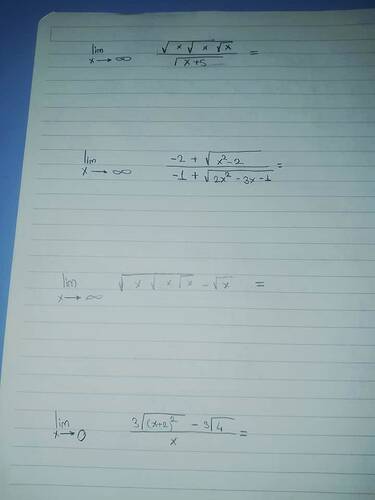 lim x→∞ √(x √(x √x)) / √(x+5) =
lim x→∞ (-2 + √(x²-2)) / (-1 + √(2x² - 3x - 1)) =
lim x→∞ √(x √(x √x)) - √x =
lim x→0 (3√((x+2)²) - 3√4) / x =